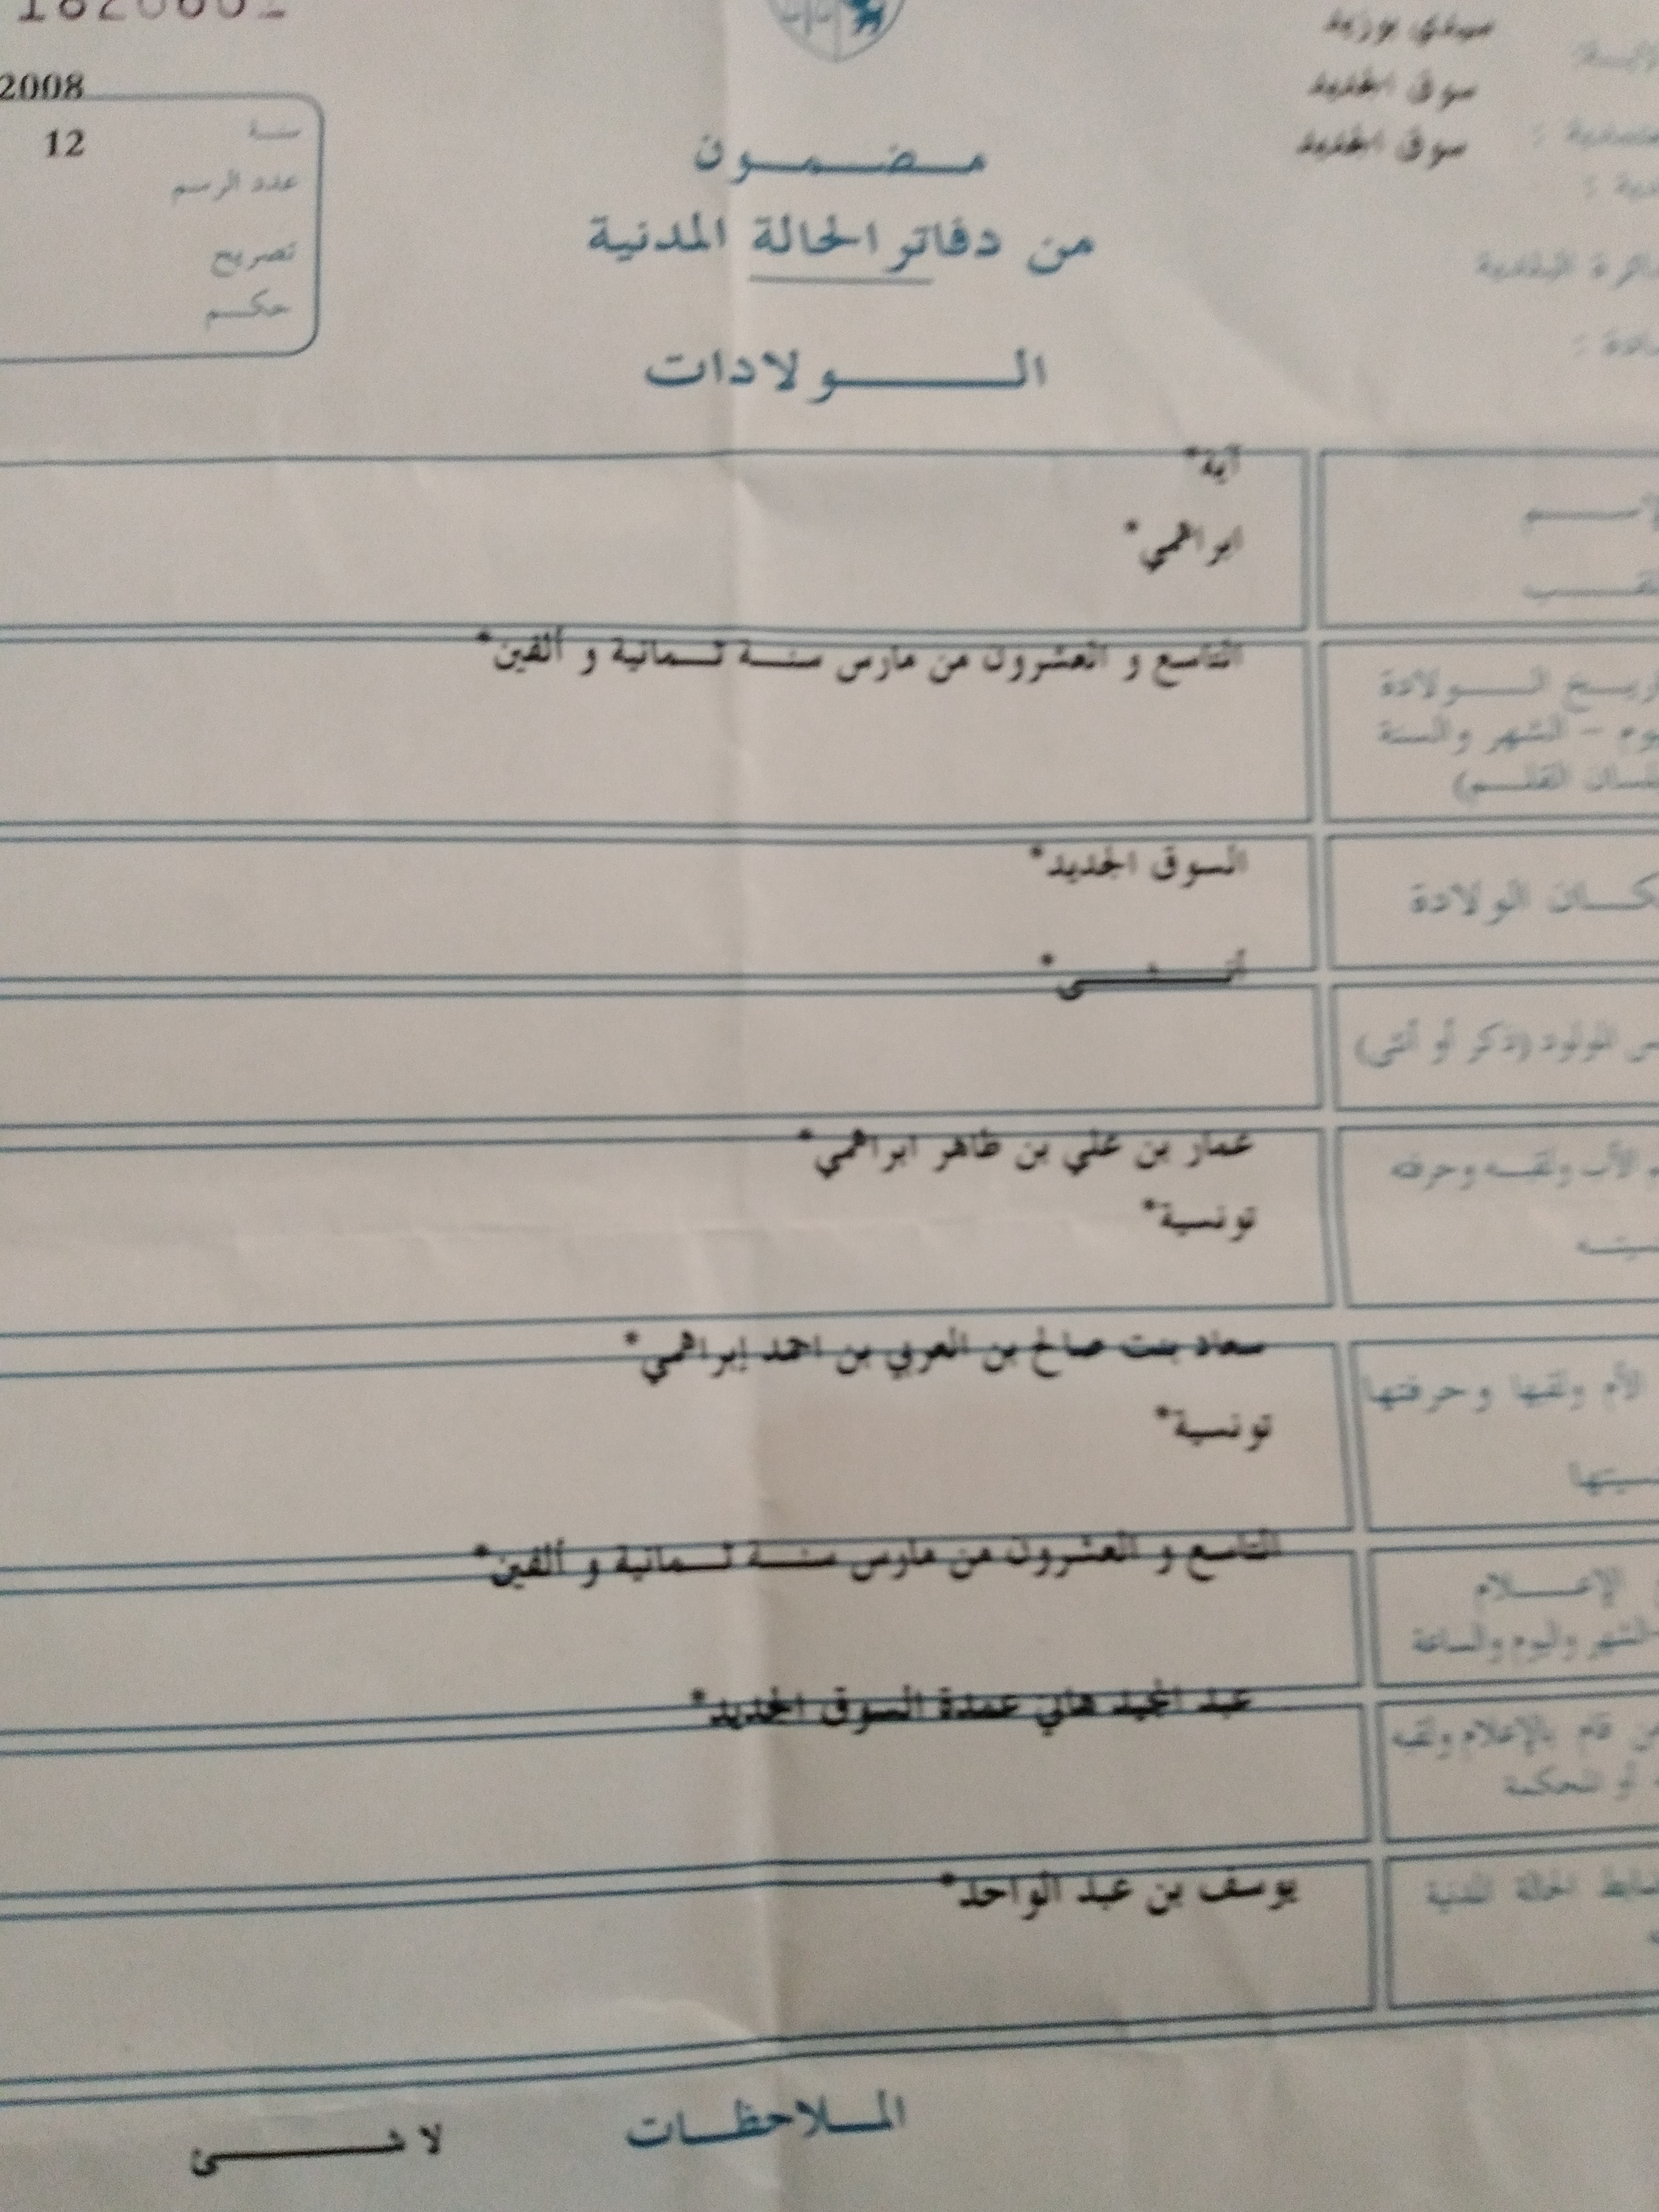 2008
12
سنة
عدد الرسم
تصريح
حكم
سيدي بوزيد
سوق الجديد
سوق الجديد
مضمون
من دفاتر الحالة المدنية
الولادات
آية*
ابراهمي*
التاسع و العشرون من مارس سنة ثمانية و ألفين*
الولادة
الشهر والسنة
القلم)
السوق الجديد*
الولادة
أنثى*
المولود (ذكر أو أنثى)
عمار بن علي بن طاهر ابراهمي*
الأب ولقبه وحرفته
تونسية*
سعاد بنت صالح بن العربي بن احمد إبراهمي*
الأم ولقبها وحرفتها
تونسية*
التاسع و العشرون من مارس سنة ثمانية و ألفين*
الإعلام
الشهر واليوم والساعة
عبد المجيد هاني عمدة السوق الجديد*
قام بالإعلام ولقبه
أو المحكمة
يوسف بن عبد الواحد*
الحالة المدنية
الملاحظات
لا شئ